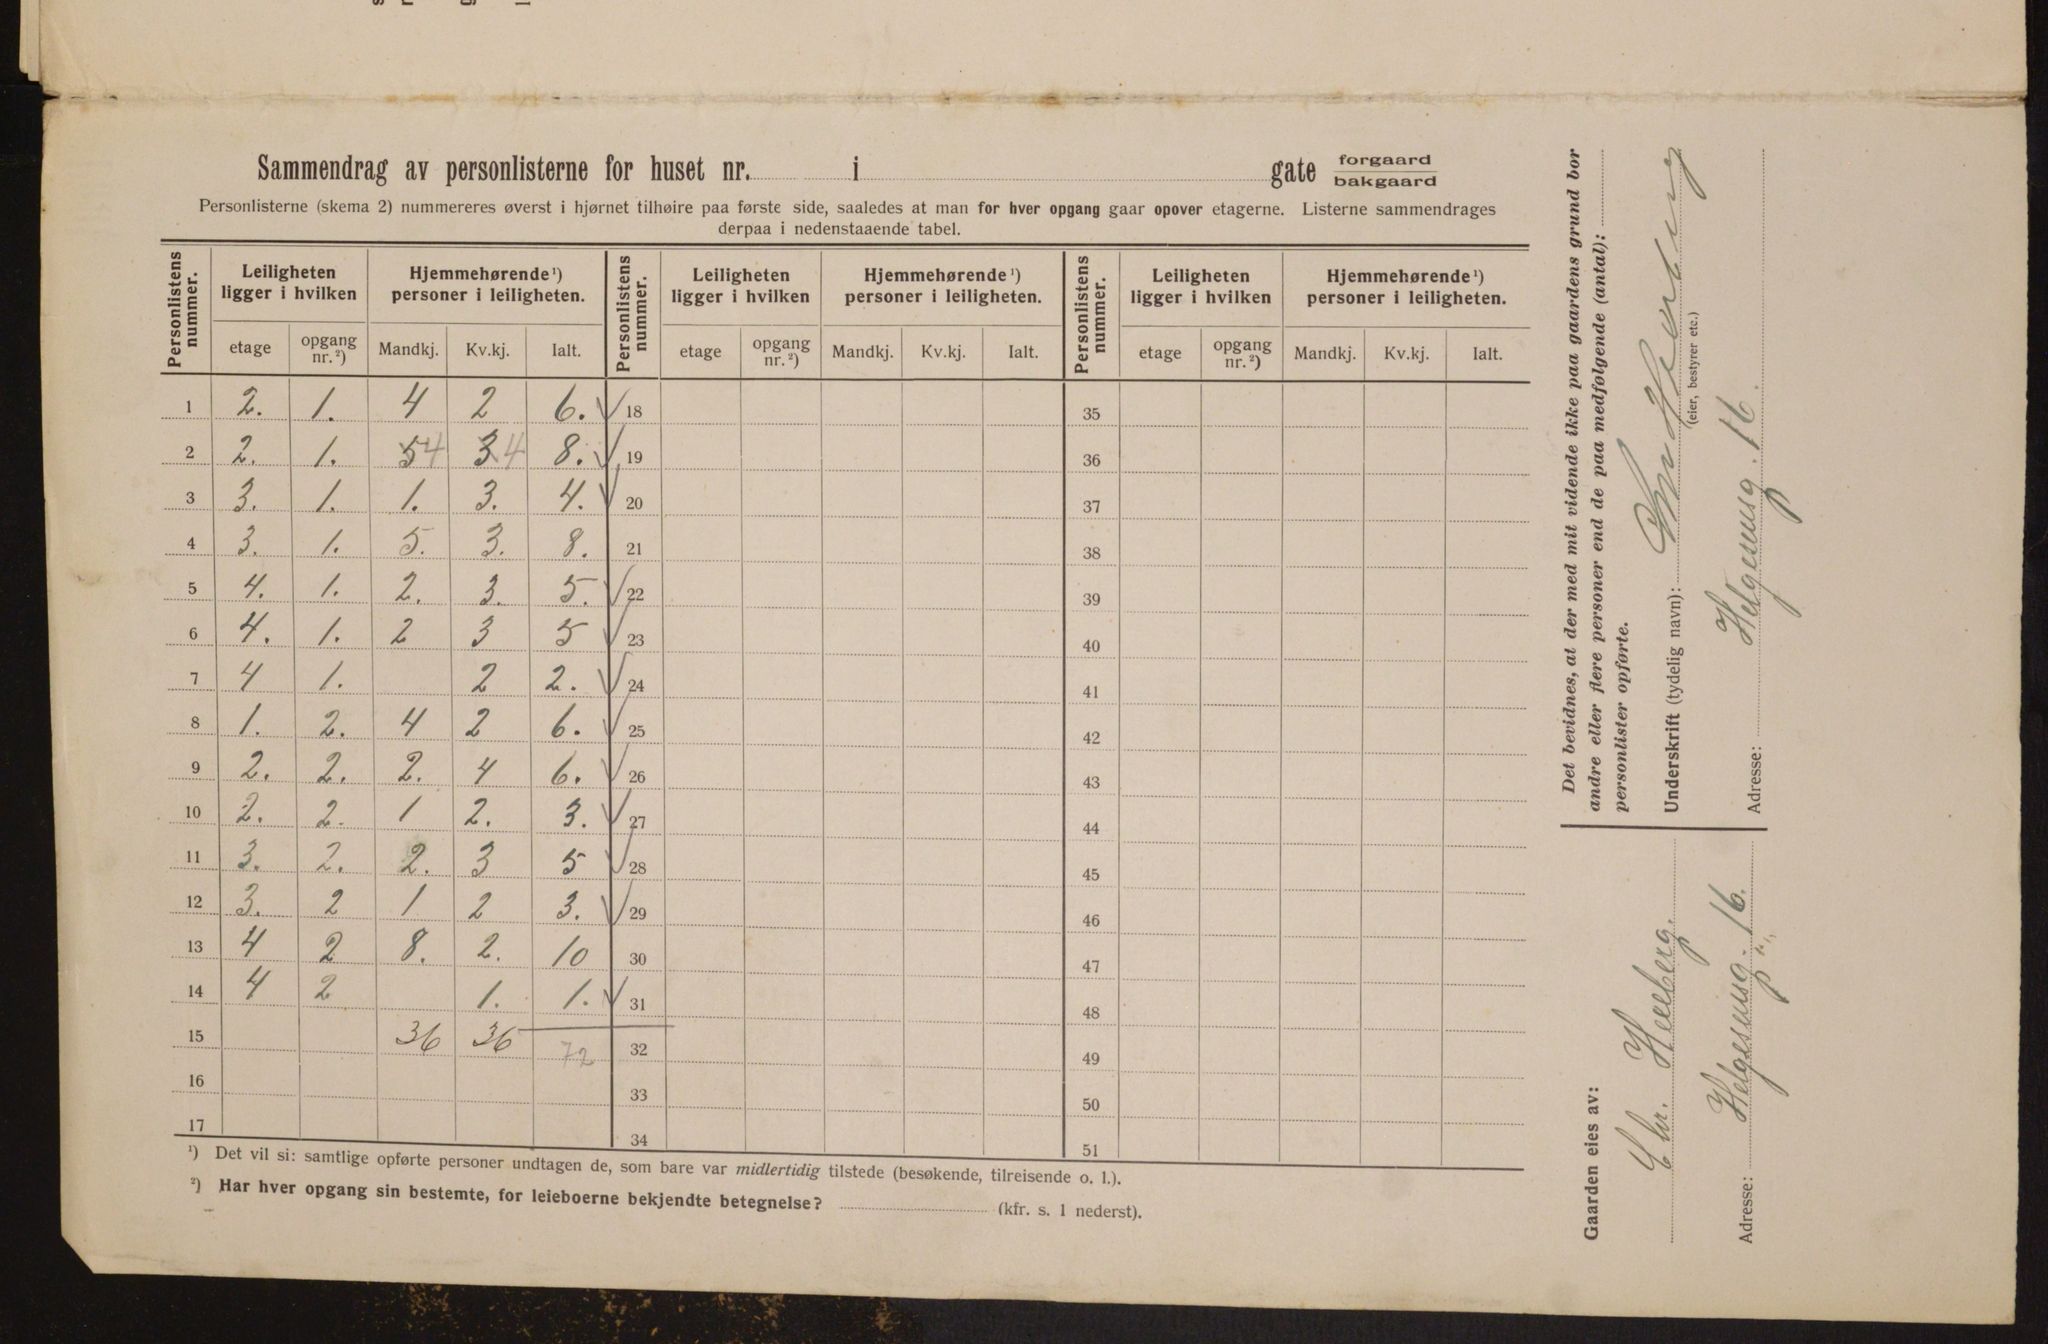 Sammendrag av personlisterne for huset nr. i gate forgaard bakgaard
Personlisterne (skema 2) nummereres øverst i hjørnet tilhøire paa første side, saaledes at man for hver opgang gaar opover etagerne. Listerne sammendrages
derpaa i nedenstaaende tabel.
Personlistens nummer. Leiligheten ligger i hvilken Hjemmehørende ¹) personer i leiligheten. Personlistens nummer. Leiligheten ligger i hvilken Hjemmehørende ¹) personer i leiligheten. Personlistens nummer. Leiligheten ligger i hvilken Hjemmehørende ¹) personer i leiligheten.
etage opgang nr. ²) Mandkj. Kv.kj. Ialt. etage opgang nr. ²) Mandkj. Kv.kj. Ialt. etage opgang nr. ²) Mandkj. Kv.kj. Ialt.
1 2. 1. 4 2 6. 18 35
2 2. 1. 5 4 3 4 8. 19 36
3 3. 1. 1. 3. 4. 20 37
4 3. 1. 5. 3. 8. 21 38
5 4. 1. 2. 3. 5. 22 39
6 4. 1. 2 3 5 23 40
7 4 1. 2 2. 24 41
8 1. 2. 4 2 6. 25 42
9 2. 2. 2. 4 6. 26 43
10 2. 2. 1 2. 3. 27 44
11 3. 2. 2. 3 5 28 45
12 3. 2 1 2 3. 29 46
13 4 2 8. 2. 10 30 47
14 4 2 1. 1. 31 48
15 36 36 72 32 49
16 33 50
17 34 51
¹) Det vil si: samtlige opførte personer undtagen de, som bare var midlertidig tilstede (besøkende, tilreisende o. l.).
²) Har hver opgang sin bestemte, for leieboerne bekjendte betegnelse? (kfr. s. 1 nederst).
Det bevidnes, at der med mit vidende ikke paa gaardens grund bor
andre eller flere personer end de paa medfølgende (antal):
personlister opførte.
Underskrift (tydelig navn):
(eier, bestyrer etc.)
Adresse: Helgesensg. 16.
Gaarden eies av:
Chr. Heeberg.
Adresse: Helgesensg. 16.